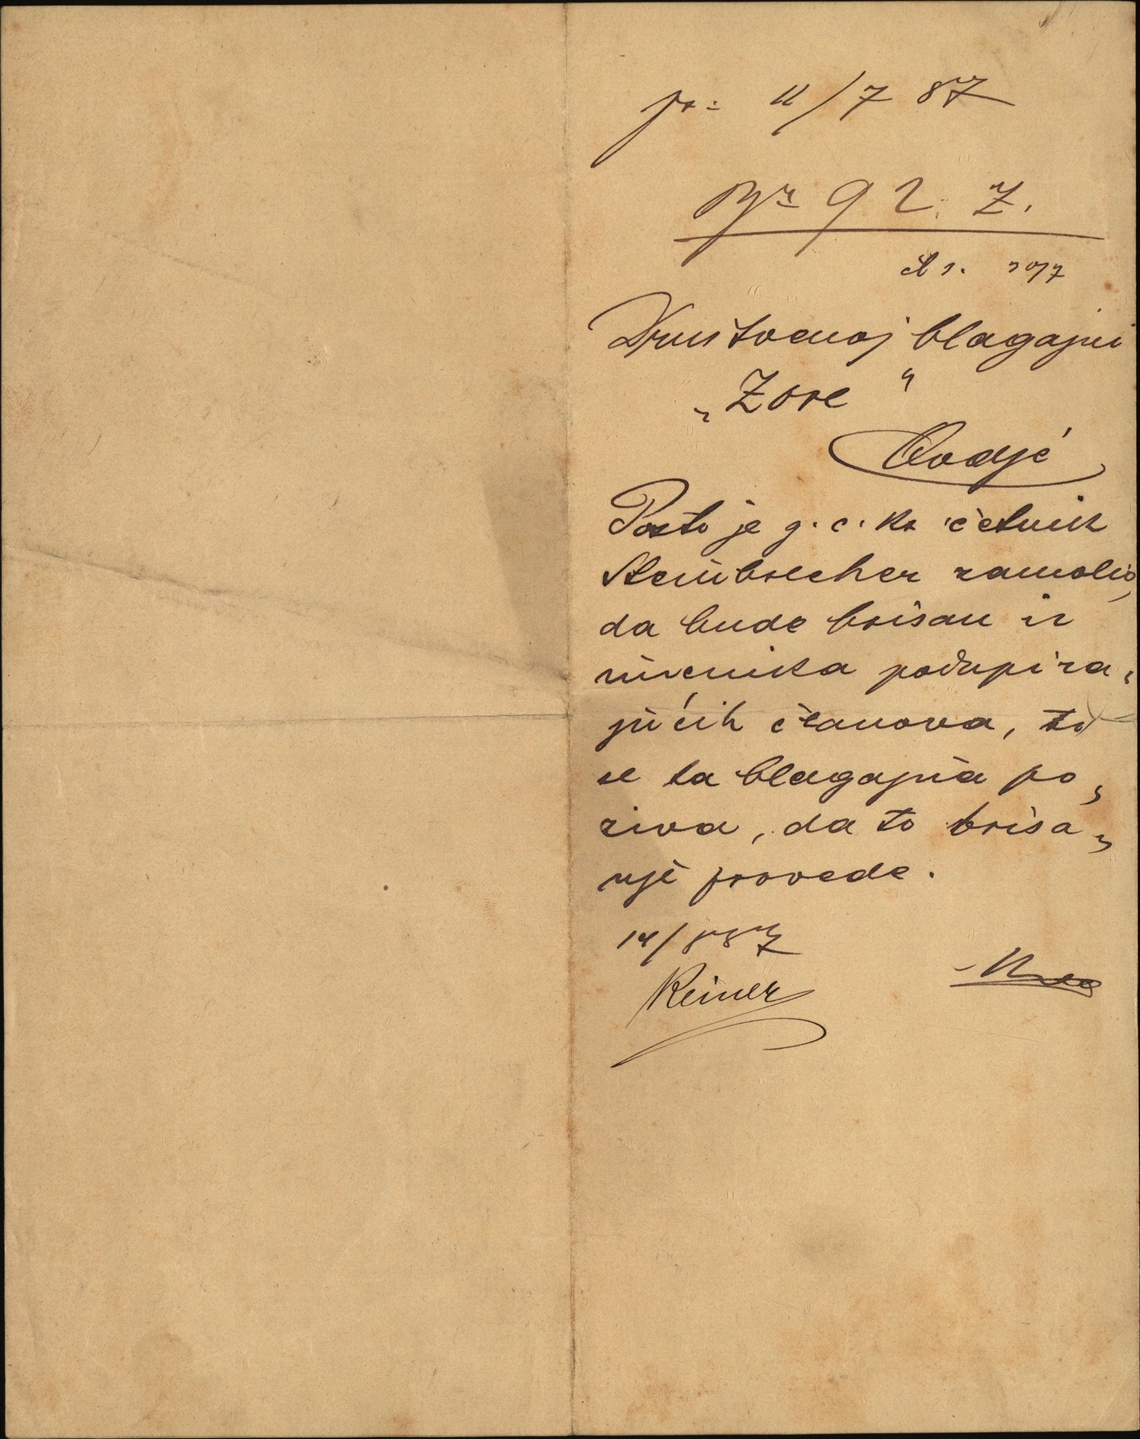 pr: 11/7 87
Br 92. Z.
Društvenoj blagajni
„Zore“
Ovdje
Pošto je g. c. kr. četnik
Steinbrecher zamolio,
da bude brisan iz
imenika podupira-
jućih članova, to
se ta blagajna po-
ziva, da to brisa-
nje provede.
Reiner